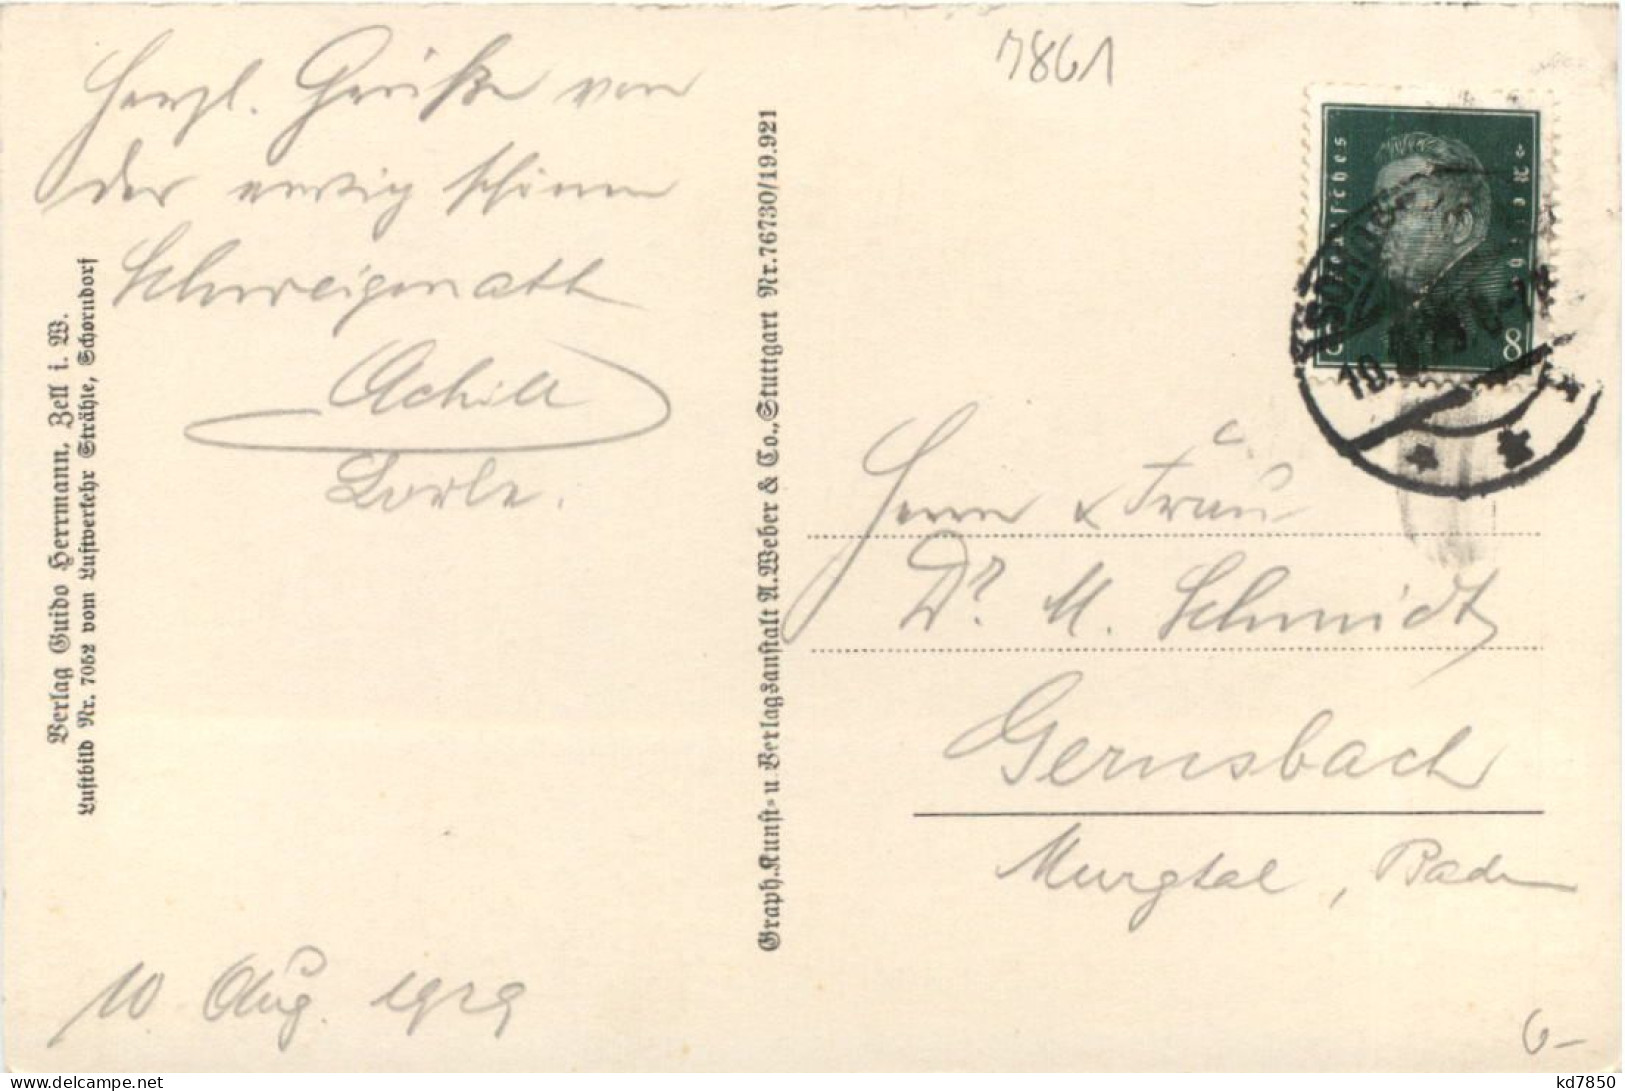 7861
Herzl. Grüße von
der ewig schönen
Schweigmatt
Achill
Lorle.
10 Aug. 1929
Verlag Guido Herrmann, Zell i. W.
Luftbild Nr. 7052 vom Luftverkehr Strähle, Schorndorf
Graph. Kunst- u. Verlagsanstalt A. Weber & Co., Stuttgart Nr. 76730/19.921
Deutsches Reich
8
10.
Herrn & Frau
Dr. M. Schmidt
Gernsbach
Murgtal, Baden
6-
kd7850